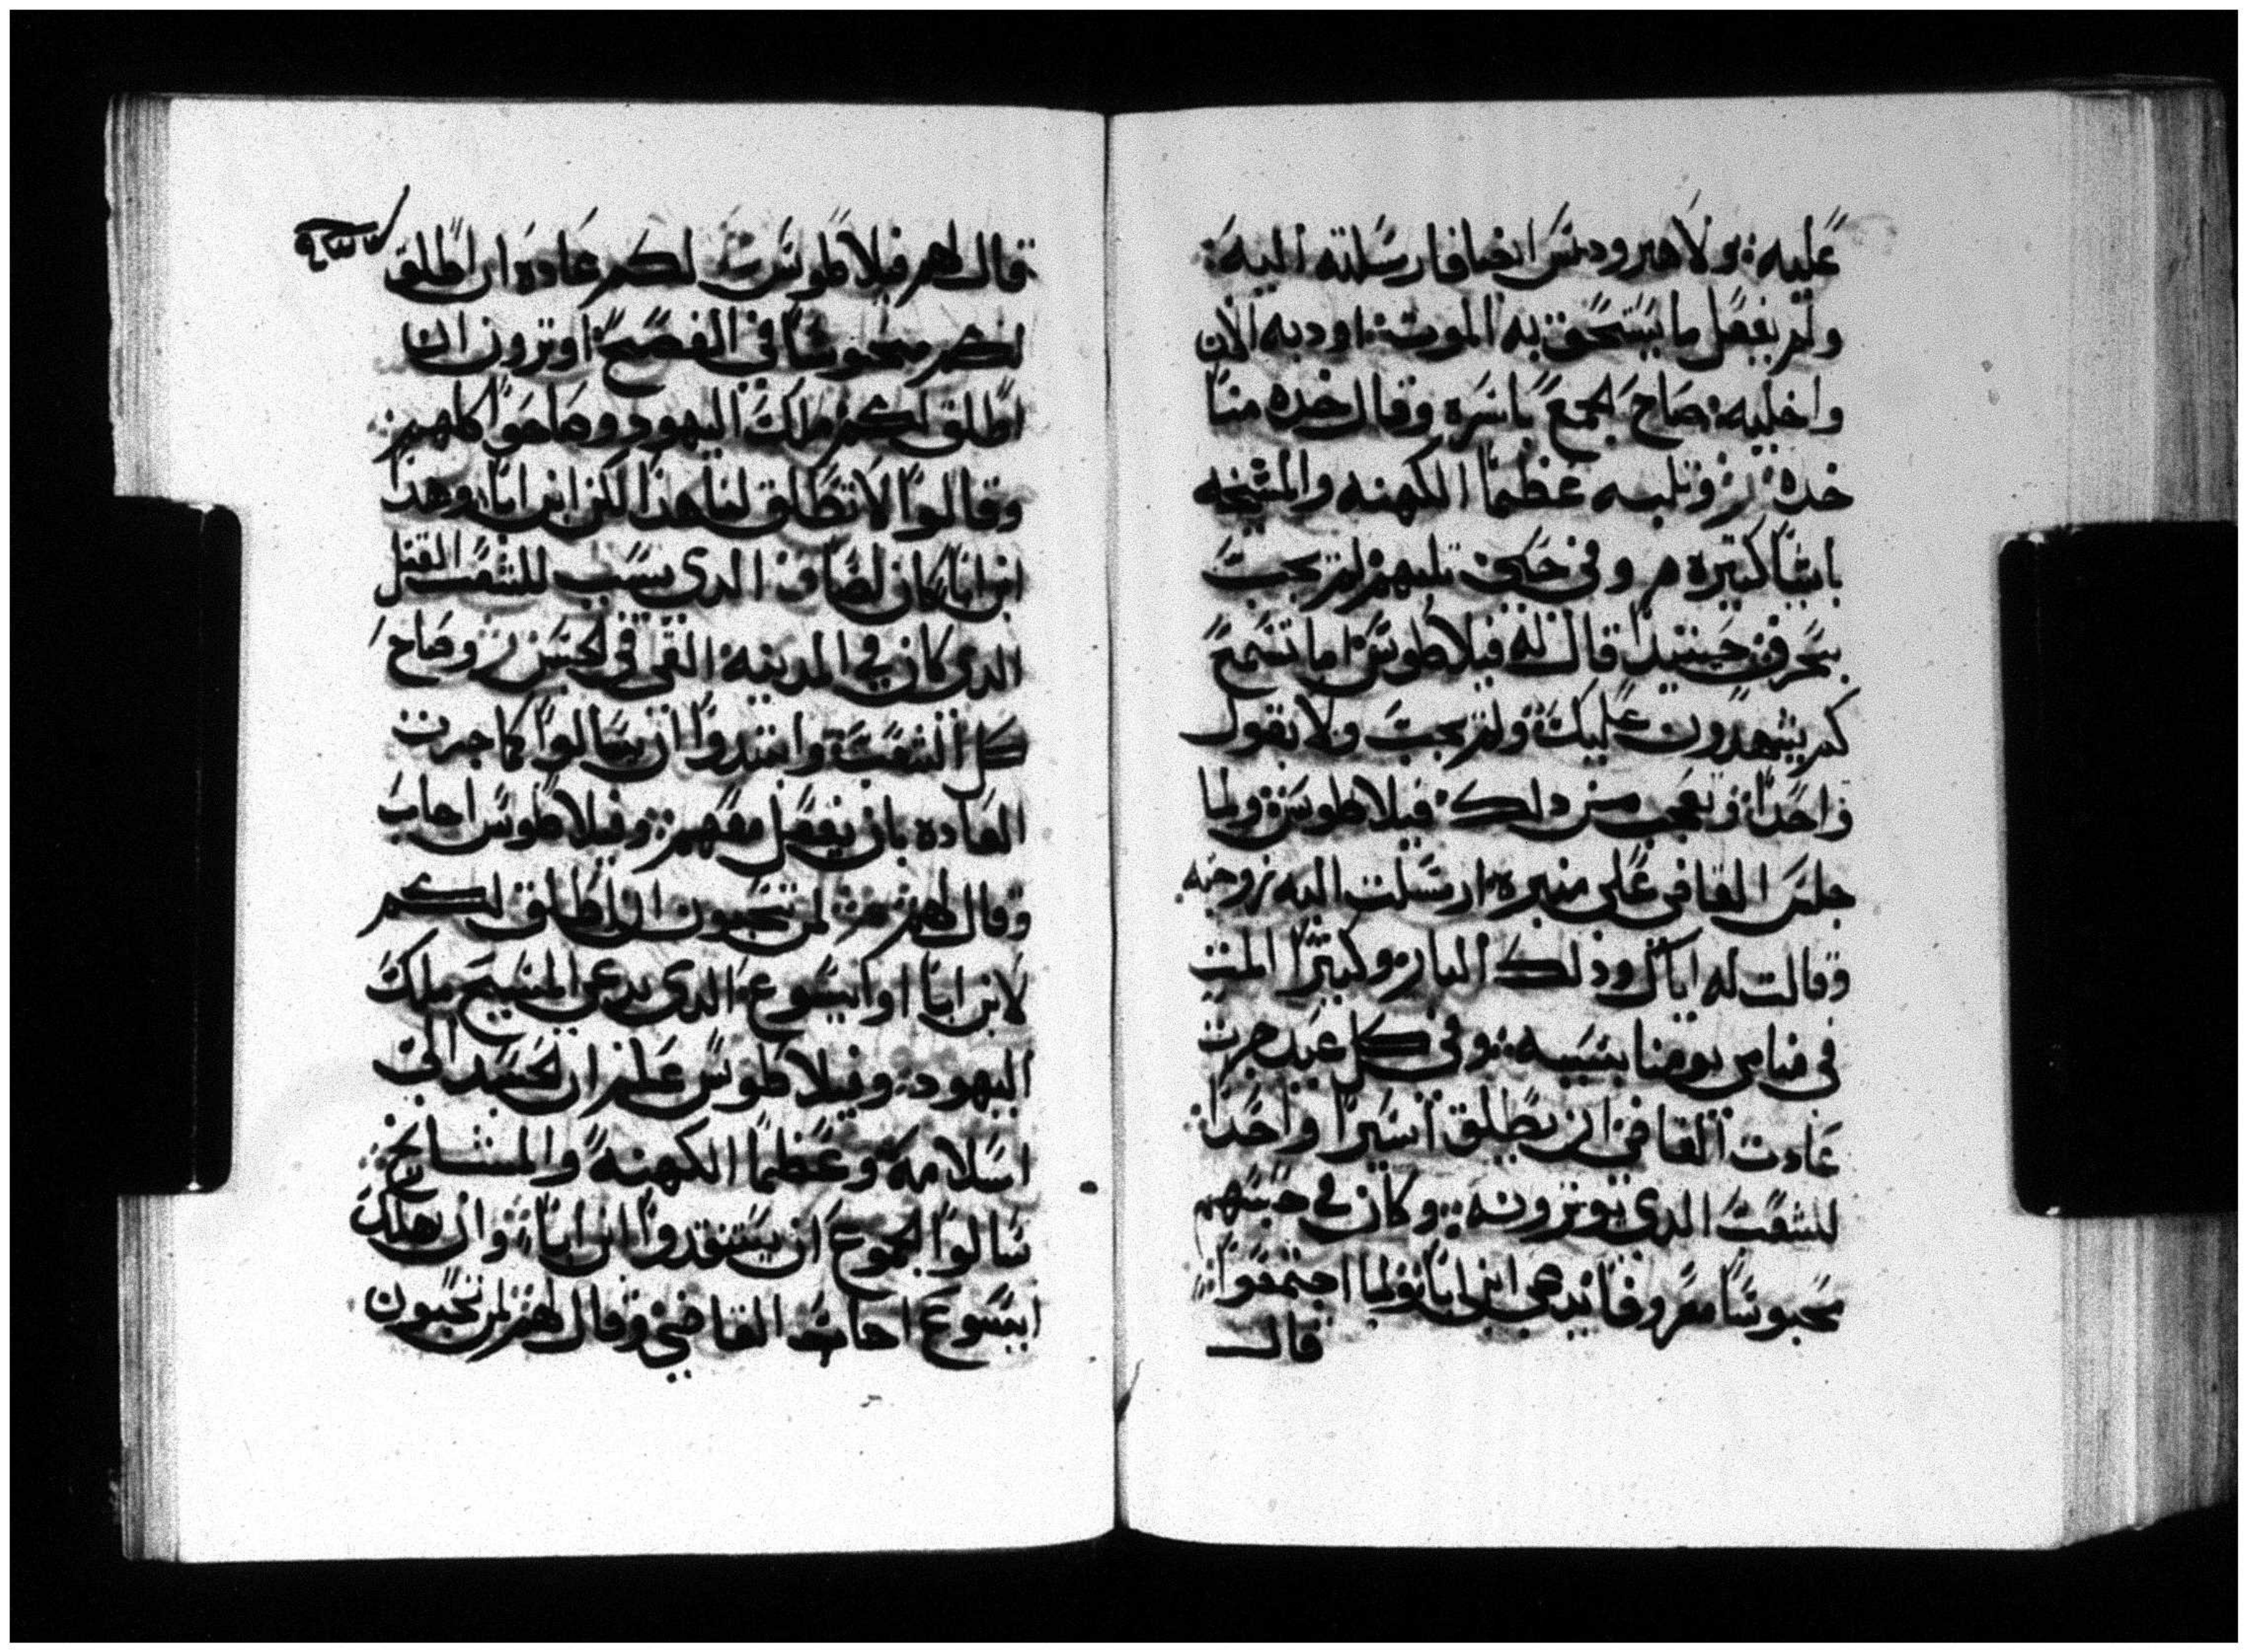 عليه: ولا هيرودس ايضا فارسلته اليه:
ولم يفعل ما يستحق به الموت: اودبه الان
واخليه: صاح لجمع باسره وقال خده منا
خده: وثلبه عظما الكهنه والمشيخه
باشيا كتيره وفي حكي ثلبهم لم يجب
بحرف حينيدا قال له فيلاطوس اما تسمع
كم يشهدون عليك ولم يجب ولا بقول
واحدا: وتعجب من دلك فيلاطوس ولما
جلس القاضي على منبره: ارسلت اليه زوجته
وقالت له اياك ودلك البار وكثيرا المت
في منامي يومنا بسببه: وفي كل عيد جرت
عادت القاضي ان يطلق اسيرا واحدا:
للشعب الدي يوترونه: وكان في حبسهم
محبوسا معروفا يدعى ابن ابا ولما اجتمعوا:
قال
قال لهم فيلاطوس لكم عاده ان اطلق
لكم محبوسا في الفصح اوترون ان
اطلق لكم ملك اليهود وصاحوا كلهم
وقالوا لا تطلق لنا هذا لكن ابن ابا وهذا
ابن ابا كان لصا من الدي بسبب للشعب القتل
الدي كان في المدينه القي في لحبس وصاح
كل الشعب وابتدوا ان يسالوا كما جرت
العاده بان يفعل معهم: وفيلاطوس اجاب
وقال لهم لمن تحبون ان اطلق لكم
لابن ابا او ايسوع الدي يدعى المسيح ملك
اليهود: وفيلاطوس علم ان لحسد الي
اسلامه وعظما الكهنه والمشايخ
سالوا لجموع ان يستنقدوا ابن ابا: وان يهلك
ايسوع اجاب القاضي وقال لهم لمن تحبون